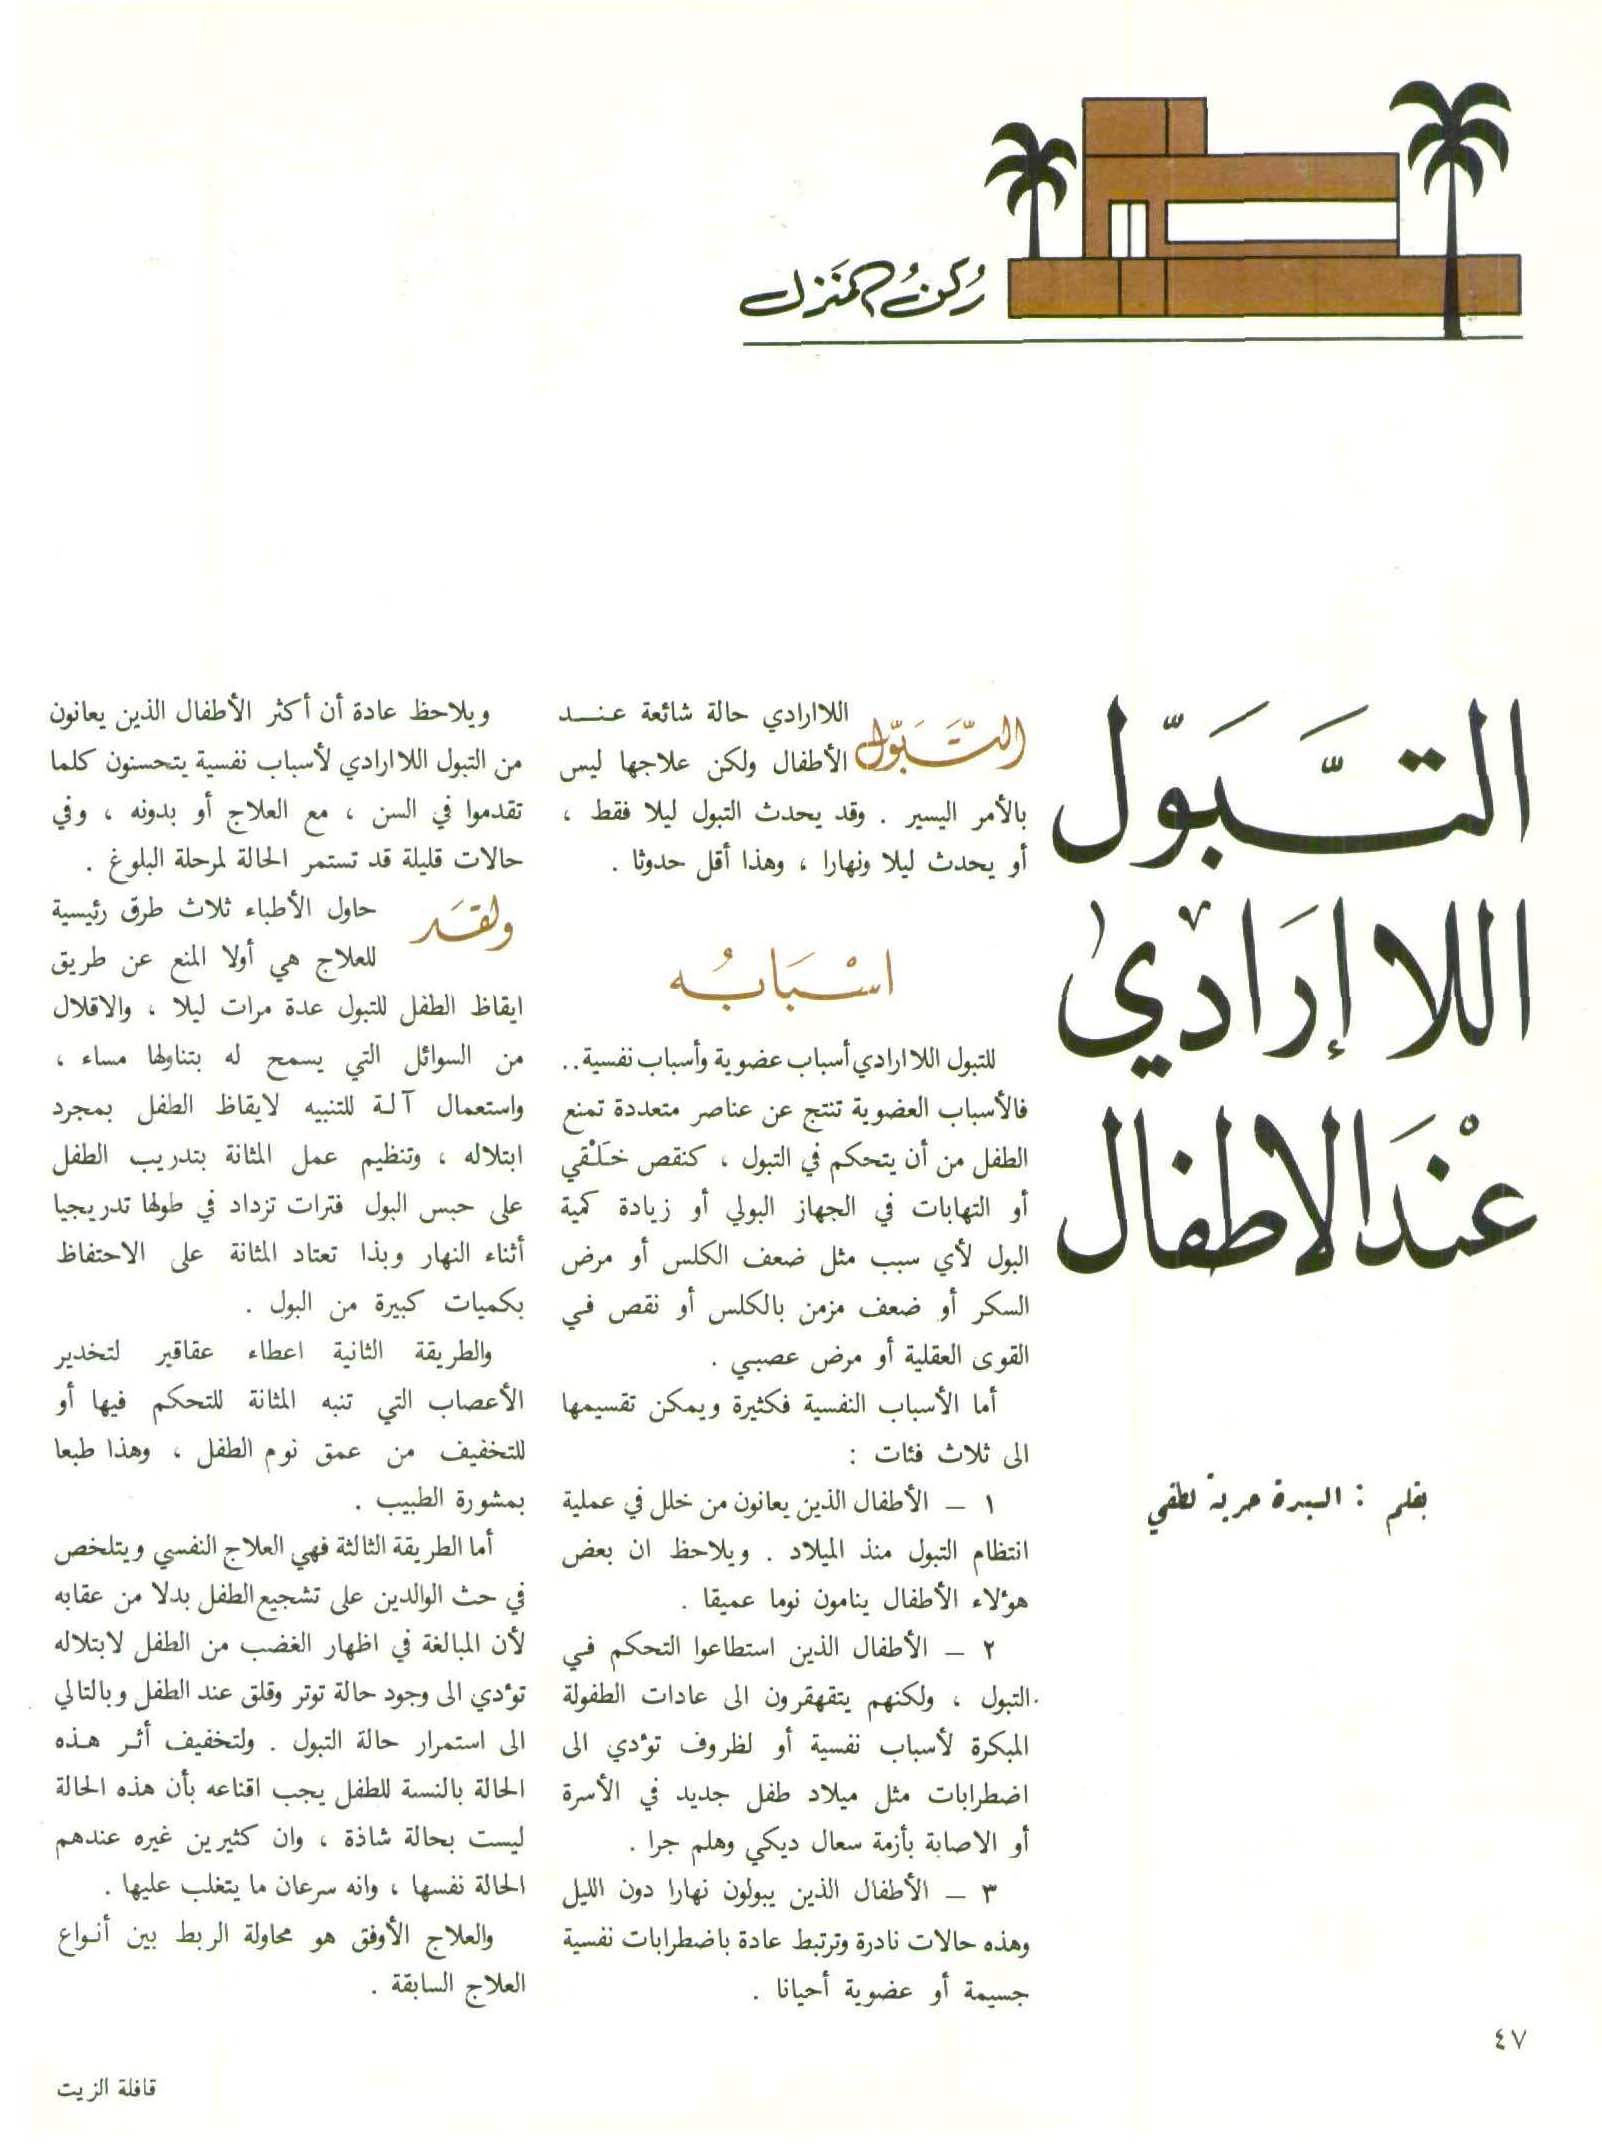 ركن المنزل
التبوّل
اللاإرادي
عند الاطفال
بقلم : السيدة حرية لطفي
التبوّل اللاارادي حالة شائعة عند
الأطفال ولكن علاجها ليس
بالأمر اليسير . وقد يحدث التبول ليلا فقط ،
أو يحدث ليلا ونهارا ، وهذا أقل حدوثا .
اسبابه
للتبول اللاارادي أسباب عضوية وأسباب نفسية..
فالأسباب العضوية تنتج عن عناصر متعددة تمنع
الطفل من أن يتحكم في التبول ، كنقص خَلْقي
أو التهابات في الجهاز البولي أو زيادة كمية
البول لأي سبب مثل ضعف الكلس أو مرض
السكر أو ضعف مزمن بالكلس أو نقص في
القوى العقلية أو مرض عصبي .
أما الأسباب النفسية فكثيرة ويمكن تقسيمها
الى ثلاث فئات :
١ – الأطفال الذين يعانون من خلل في عملية
انتظام التبول منذ الميلاد . ويلاحظ ان بعض
هؤلاء الأطفال ينامون نوما عميقا .
٢ – الأطفال الذين استطاعوا التحكم في
التبول ، ولكنهم يتقهقرون الى عادات الطفولة
المبكرة لأسباب نفسية أو لظروف تؤدي الى
اضطرابات مثل ميلاد طفل جديد في الأسرة
أو الاصابة بأزمة سعال ديكي وهلم جرا .
٣ – الأطفال الذين يبولون نهارا دون الليل
وهذه حالات نادرة وترتبط عادة باضطرابات نفسية
جسيمة أو عضوية أحيانا .
ويلاحظ عادة أن أكثر الأطفال الذين يعانون
من التبول اللاارادي لأسباب نفسية يتحسنون كلما
تقدموا في السن ، مع العلاج أو بدونه ، وفي
حالات قليلة قد تستمر الحالة لمرحلة البلوغ .
ولقد حاول الأطباء ثلاث طرق رئيسية
للعلاج هي أولا المنع عن طريق
ايقاظ الطفل للتبول عدة مرات ليلا ، والاقلال
من السوائل التي يسمح له بتناولها مساء ،
واستعمال آلة للتنبيه لايقاظ الطفل بمجرد
ابتلاله ، وتنظيم عمل المثانة بتدريب الطفل
على حبس البول فترات تزداد في طولها تدريجيا
أثناء النهار وبذا تعتاد المثانة على الاحتفاظ
بكميات كبيرة من البول .
والطريقة الثانية اعطاء عقاقير لتخدير
الأعصاب التي تنبه المثانة للتحكم فيها أو
للتخفيف من عمق نوم الطفل ، وهذا طبعا
بمشورة الطبيب .
أما الطريقة الثالثة فهي العلاج النفسي ويتلخص
في حث الوالدين على تشجيع الطفل بدلا من عقابه
لأن المبالغة في اظهار الغضب من الطفل لابتلاله
تؤدي الى وجود حالة توتر وقلق عند الطفل وبالتالي
الى استمرار حالة التبول . ولتخفيف أثر هذه
الحالة بالنسبة للطفل يجب اقناعه بأن هذه الحالة
ليست بحالة شاذة ، وان كثيرين غيره عندهم
الحالة نفسها ، وانه سرعان ما يتغلب عليها .
والعلاج الأوفق هو محاولة الربط بين أنواع
العلاج السابقة .
٤٧
قافلة الزيت